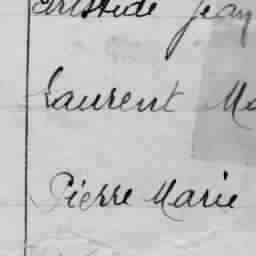 Aristide Jean
Laurent Ma
Pierre Marie